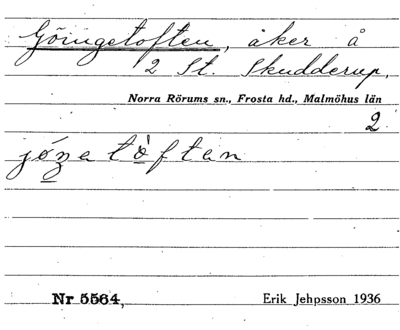 Göingetoften, åker å
2 St. Skudderup,
Norra Rörums sn., Frosta hd., Malmöhus län
2
Nr 5564,
Erik Jehpsson 1936